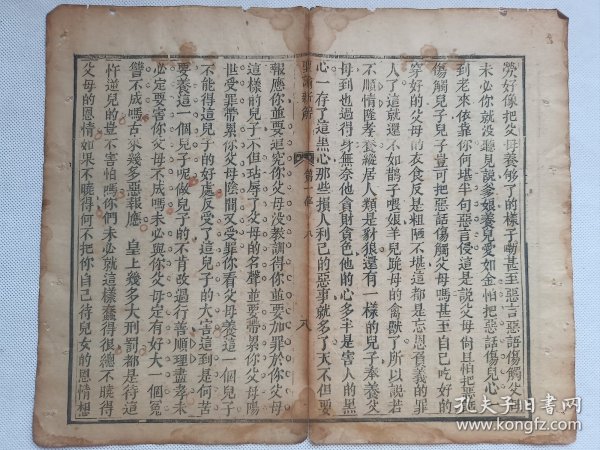 勞好像把父母養够了的樣子嘶甚至惡言惡語傷觸父母
未必你就没聽見說爹娘養兒愛如金怕把惡話傷兒心一
到老來依靠你何堪半句惡言侵這是說父母尙且怕把惡
傷觸兒子兒子豈可把惡話傷觸父母嗎甚至自己吃好的
穿好的父母的衣食反是粗陋不堪這都是忘恩背義的罪
人了這就還不如鵲子喂娘羊兒跪母的禽獸了所以說若
不順情隆孝養縱居人類是豺狼還有一樣的兒子奉養父
母到也過得身無奈他貪財貪色他的心多半是害人的黑
心一存了這黒心那些損人利己的惡事就多了天不但要
聖諭新解
第一條
八
報應你並要追究你父母没教調得你並要加罪於你父母
這樣的兒子不但玷辱了父母的名聲並要帶累你父母陽
世受罪帶累你父母陰間又受罪你看父母養這一個兒子
不能得這兒子的好處反受了這兒子的大害這到是何苦
要養這一個兒子呢做兒子的不肯改過行善順理盡孝未
必定要害你父母不成嗎未必與你父母定有好大一個冤
讐不成嗎古來幾多惡報應 皇上幾多大刑罰都是待這
忤逆兒的豈不害怕嗎你們未必就這樣蠢得很總不曉得
父母的恩情如果不曉得何不把你自己待兒女的恩情想
孔夫子旧书网
www.kongfz.com